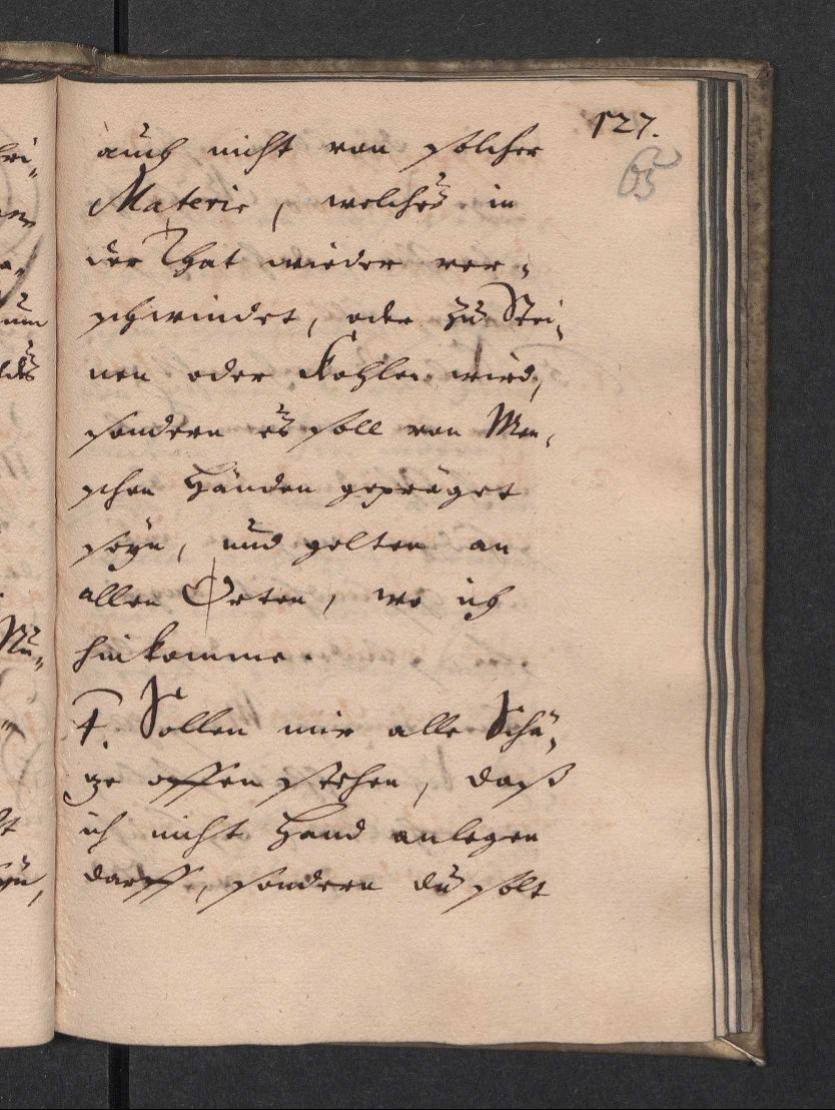 127.
65
auch nicht von solcher
Materie, welches in
der That wieder ver-
schwindet, oder zu Stei-
nen oder Kohlen wird,
sondern es soll von Men-
schen Händen gepräget
seyn, und gelten an
allen Orten, wo ich
hinkomme.
4. Sollen mir alle Schä-
ze offen stehen, daß
ich nicht Hand anlegen
darff, sondern du solt